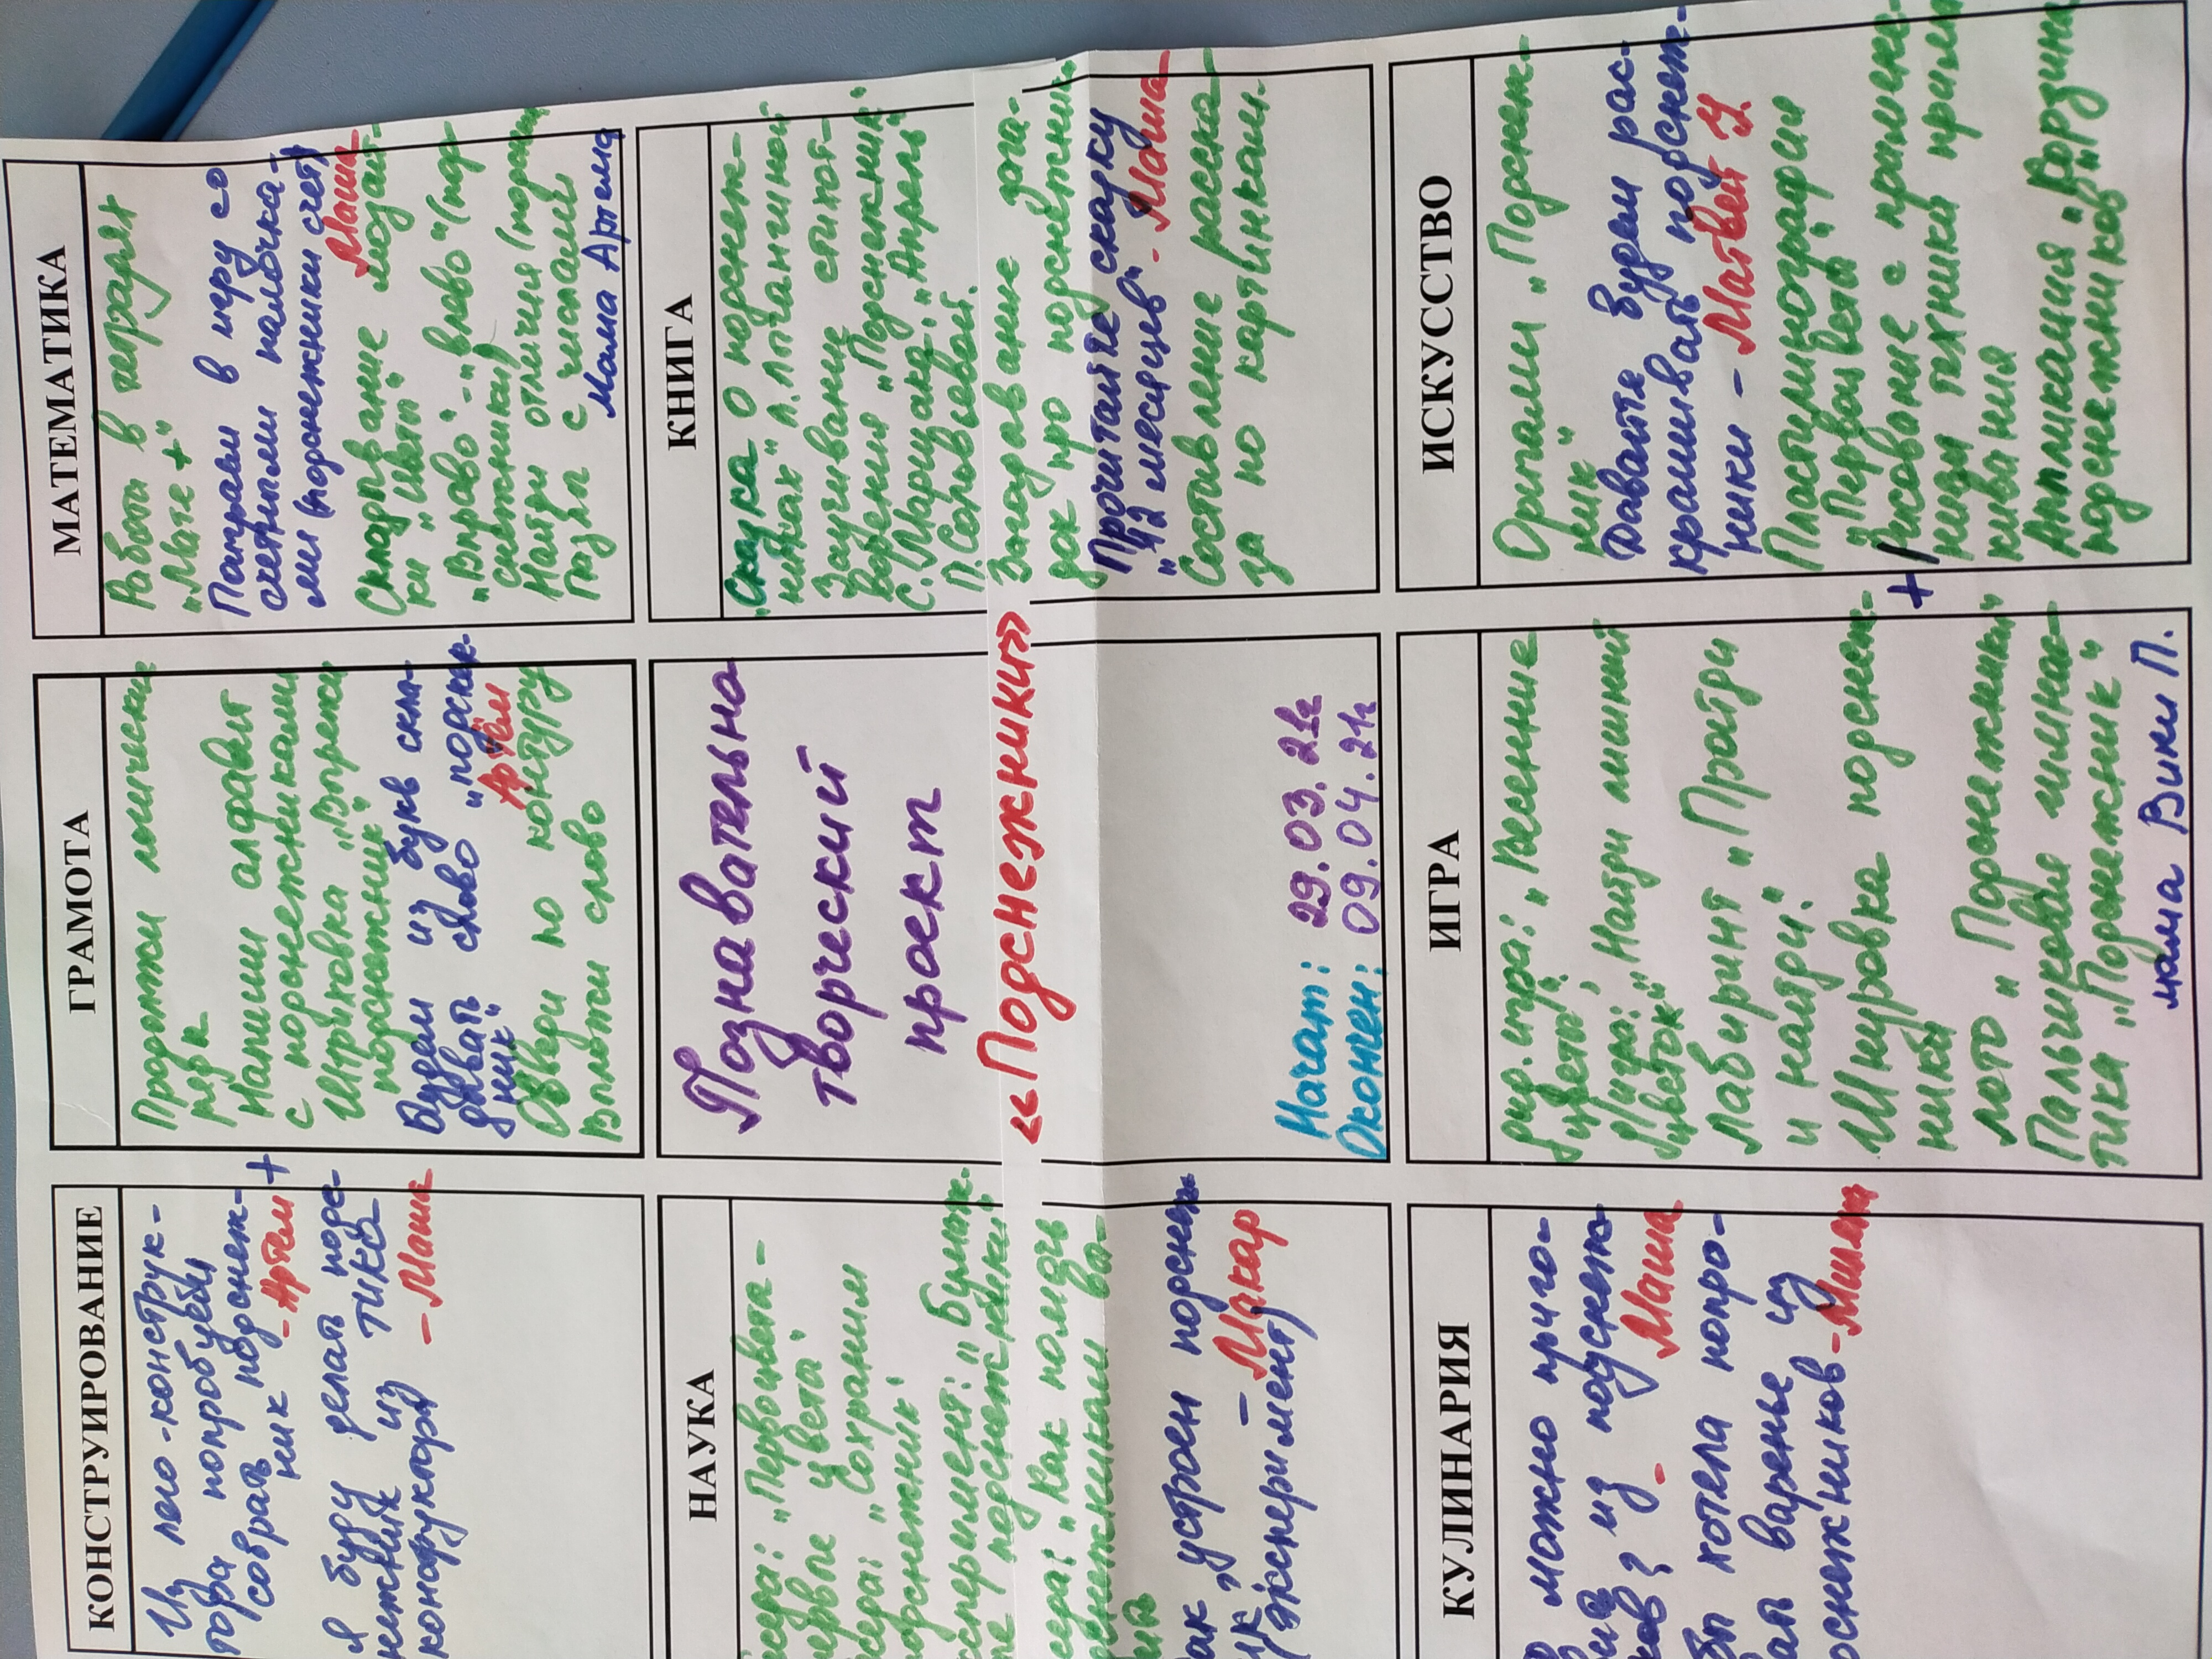 КОНСТРУИРОВАНИЕ
Из лего-конструк-
тора попробуем
собрать подснеж-
ник - Артем +
Я буду делать подс-
нежник из
конструктора - Маша
ГРАМОТА
Продолжи логически
ряд
Напиши алфавит
с подснежниками
Штриховка "Вопреки
подснежник"
Будем из букв скла-
дывать слово "подснеж-
ник" Артём
Обведи по контуру
Вплоти слово
МАТЕМАТИКА
Работа в тетради
"Мате +"
Поиграем в игру со
счетными палочка-
ми (подснежники счет)
Маша
Складывание
ки "Цвет"
"Вправо"-"влево" (под-
снежники)
Найди отличия
Пазл с числами
Мама Артема
НАУКА
"Первоцвета-
первые цвета"
"Сохраним
подснежник"
"Бумаж-
ные подснежники"
"Как помочь
подснежникам вы-
жить
Как устроен подснеж-
ник - Макар
(эксперимент)
Познавательно
творческий
проект
«Подснежники»
Начат: 29.03.21г
Окончен: 09.04.21г
КНИГА
"Сказка о подснеж-
никах" П. Лопатиной
Заучивание стихот-
ворения "Подснежник"
С. Маршака; "Апрель"
П. Соловьевой.
Загадование зага-
док про подснежники
Прочитайте сказку
"12 месяцев" - Маша
Составление расска-
за по картинкам.
КУЛИНАРИЯ
можно приго-
из подснежн
ков? - Маша
бы хотела попро-
варенье из
подснежников - Милена
ИГРА
Дид. игра: "Весенние
цветы",
"Найди лишний
цветок"
Лабиринт "Пройди
и найди".
Шнуровка подснеж-
ники +
Лото "Подснежники
Пальчиковая гимнас-
тика "Подснежник"
мама Вики П.
ИСКУССТВО
Оригами "Подснеж-
ник"
Давайте будем рас-
крашивать подснеж-
ники - Матвей У.
Пластилинография
"Первоцветы"
Рисование с примене-
нием техники прима-
кивания
Аппликация "Корзина
подснежников"